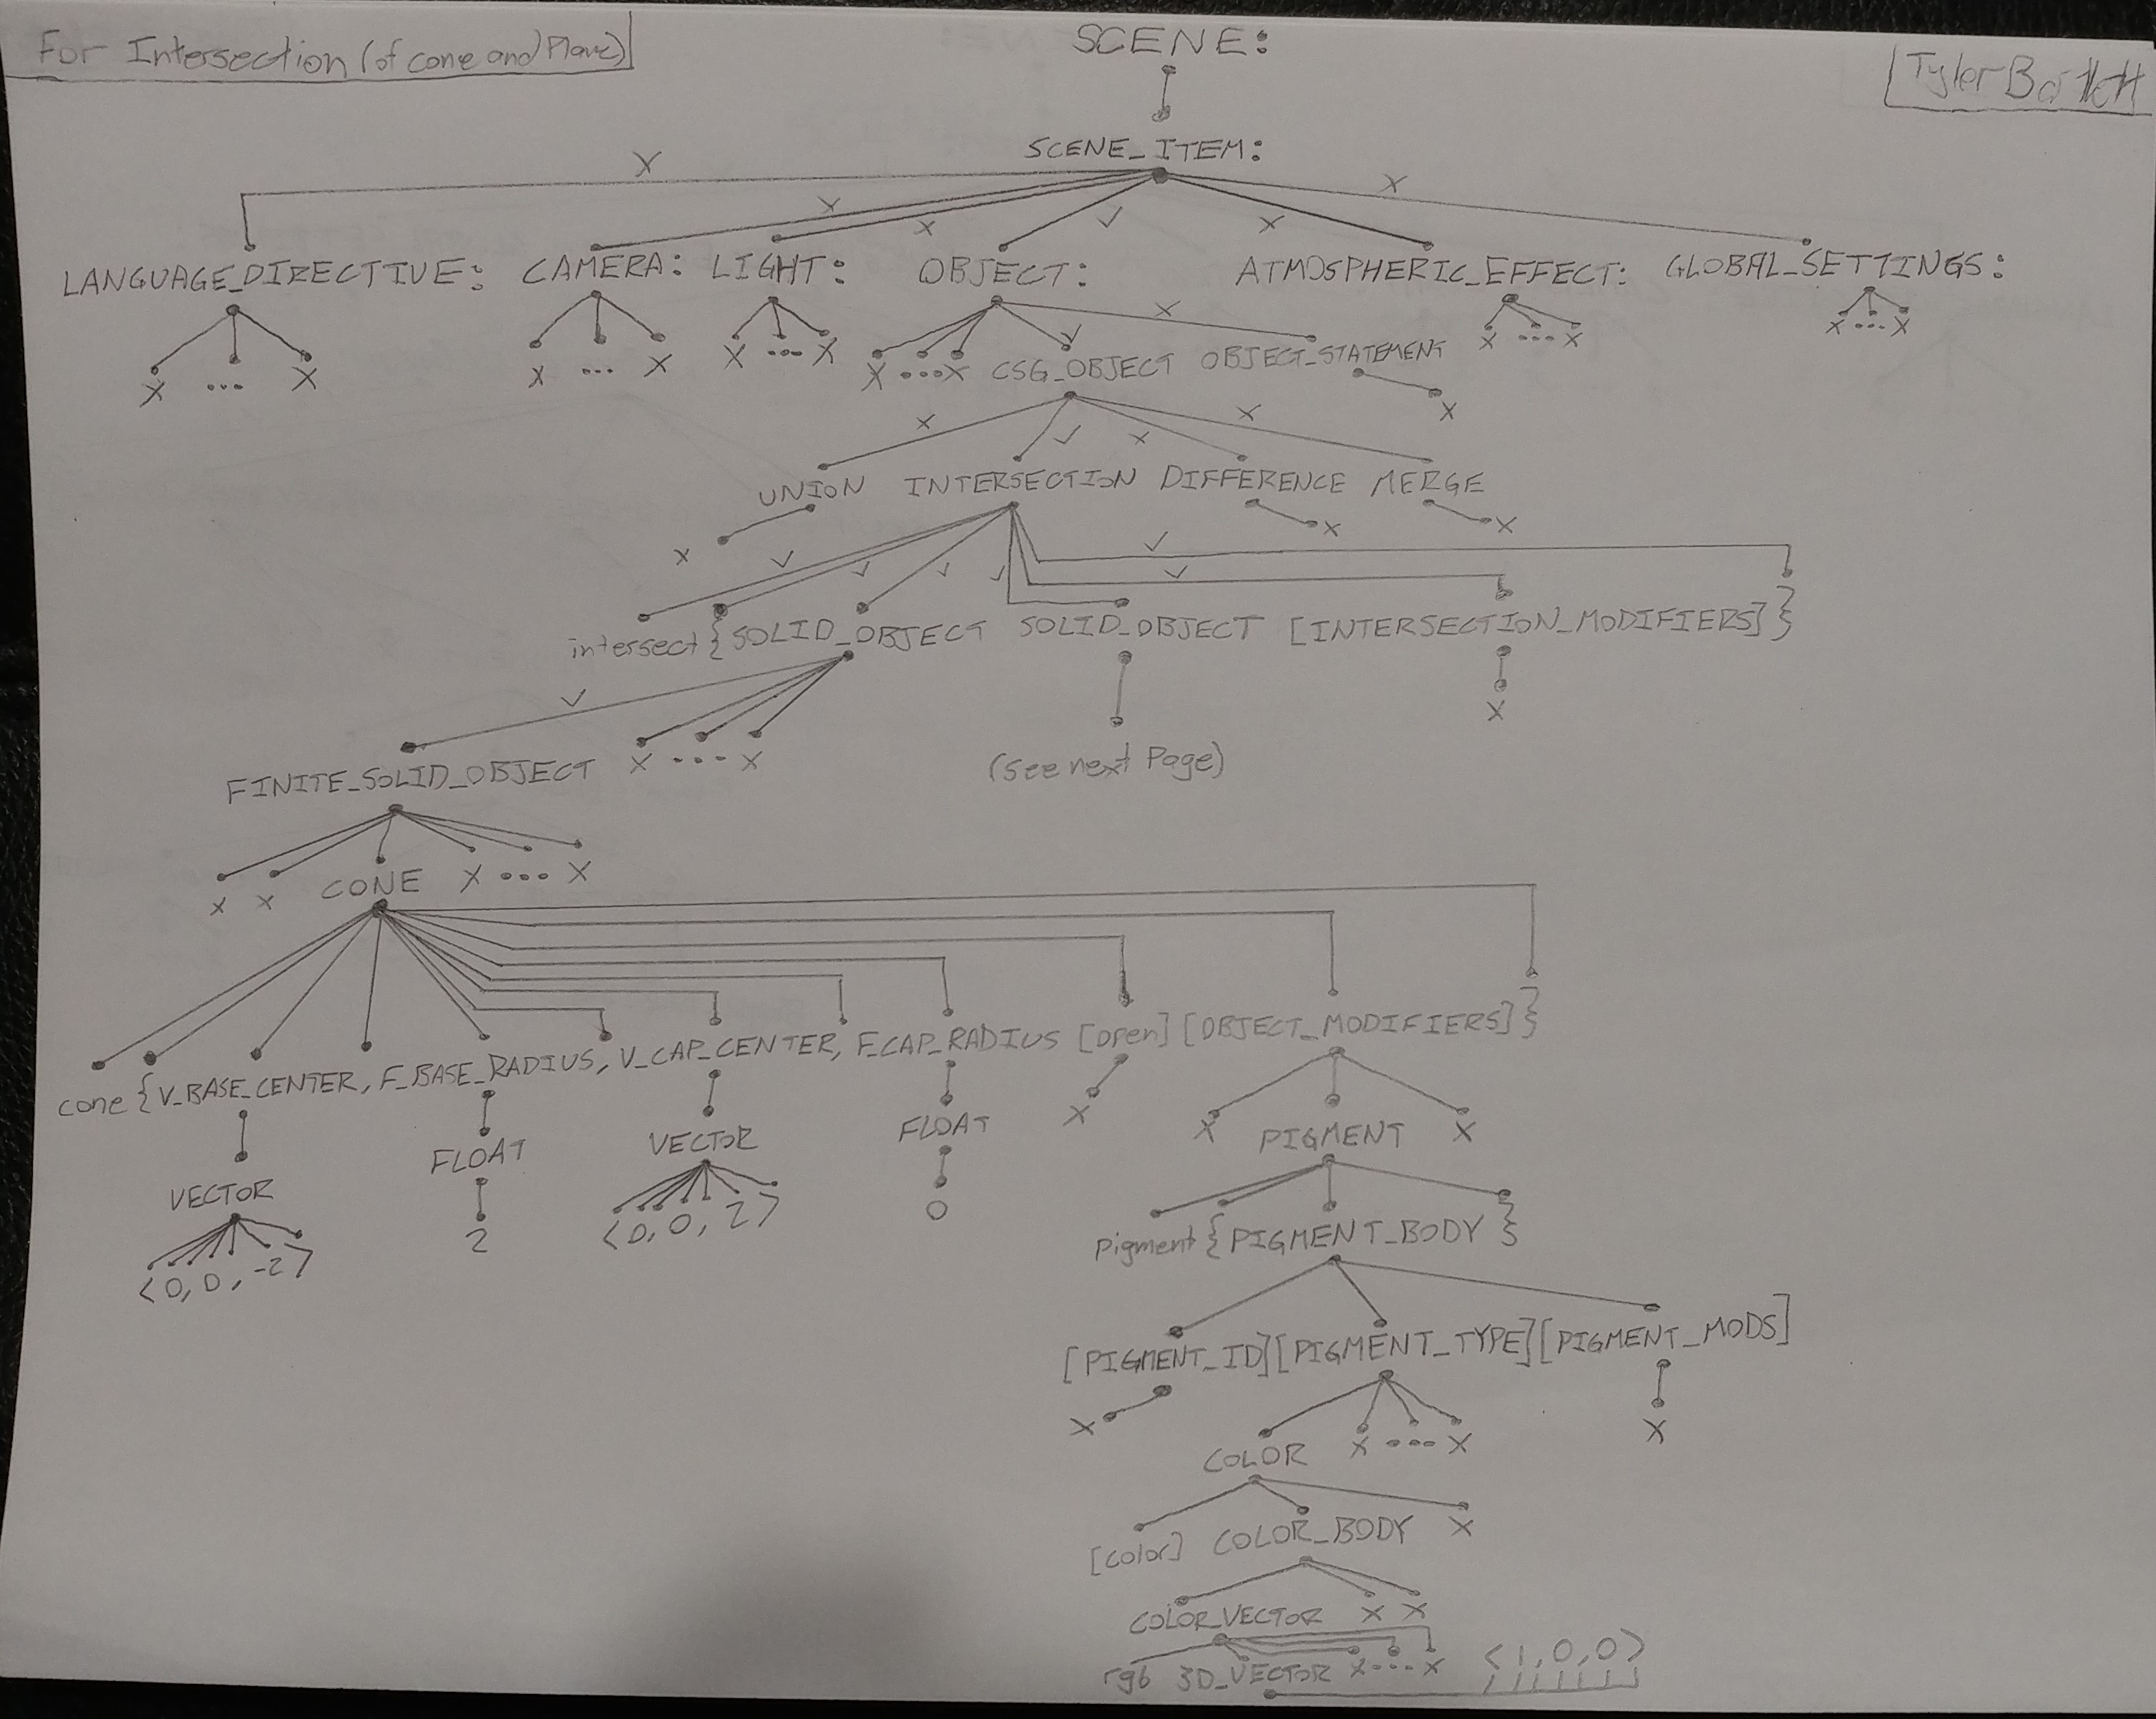 For Intersection (of cone and Plane)
SCENE:
Tyler Bartlett
SCENE_ITEM:
X X X ✓ X X
LANGUAGE_DIRECTIVE: CAMERA: LIGHT: OBJECT: ATMOSPHERIC_EFFECT: GLOBAL_SETTINGS:
✓ X
X ... X X ... X X ... X X ... X CSG_OBJECT OBJECT_STATEMENT X ... X X ... X
X
X ✓ X X
UNION INTERSECTION DIFFERENCE MERGE
X X X
✓ ✓ ✓ ✓ ✓ ✓
intersect { SOLID_OBJECT SOLID_OBJECT [INTERSECTION_MODIFIERS] }
✓ X
FINITE_SOLID_OBJECT X ... X (see next Page)
X X CONE X ... X
cone { V_BASE_CENTER, F_BASE_RADIUS, V_CAP_CENTER, F_CAP_RADIUS [open] [OBJECT_MODIFIERS] }
VECTOR FLOAT VECTOR FLOAT X X PIGMENT X
<0, 0, -2> 2 <0, 0, 2> 0
Pigment { PIGMENT_BODY }
[PIGMENT_ID] [PIGMENT_TYPE] [PIGMENT_MODS]
X COLOR X ... X X
[color] COLOR_BODY X
COLOR_VECTOR X X
rgb 3D_VECTOR X ... X <1, 0, 0>